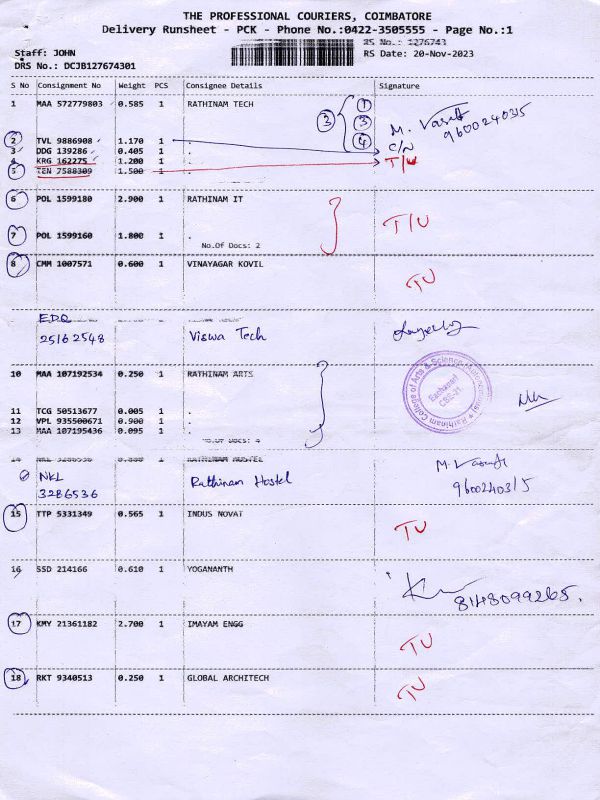 THE PROFESSIONAL COURIERS, COIMBATORE
Delivery Runsheet - PCK - Phone No.:0422-3505555 - Page No.:1
RS No.: 1276743
Staff: JOHN RS Date: 20-Nov-2023
DRS No.: DCJB127674301
S No Consignment No Weight PCS Consignee Details Signature
1 MAA 572779803 0.585 1 RATHINAM TECH
3 1 3 4
M. Vasath
9600240315
2 TVL 9886908 1.170 1 .
3 DDG 139286 0.405 1 . C/N
4 KRG 162275 1.200 1 . T/U
5 TEN 7588309 1.500 1 .
6 POL 1599180 2.900 1 RATHINAM IT
T/U
7 POL 1599160 1.800 1 .
No.Of Docs: 2
8 CMM 1007571 0.600 1 VINAYAGAR KOVIL
TU
EDQ
25162548 Viswa Tech
10 MAA 107192534 0.250 1 RATHINAM ARTS
Rathinam College of Arts & Science
11 TCG 50513677 0.005 1 .
12 VPL 935500671 0.900 1 .
13 MAA 107195436 0.095 1 .
No.Of Docs: 4
14 NKL 3286536 1 RATHINAM HOSTEL
NKL Rathinam Hostel M. Vasath
3286536 9600240315
15 TTP 5331349 0.565 1 INDUS NOVAT
TU
16 SSD 214166 0.610 1 YOGANANTH
8148099265.
17 KMY 21361182 2.700 1 IMAYAM ENGG
TU
18 RKT 9340513 0.250 1 GLOBAL ARCHITECH
TU